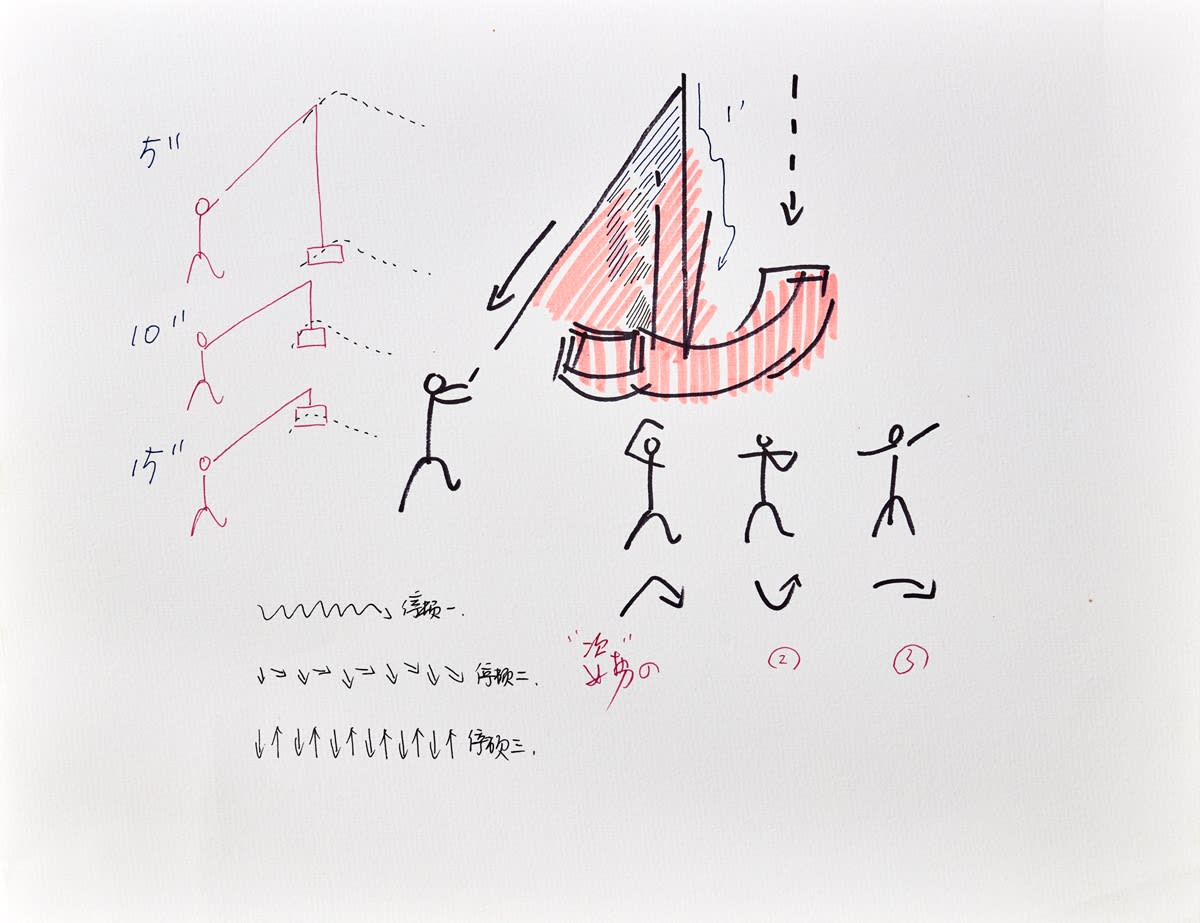 5"
10"
15"
1'
停顿一.
停顿二.
停顿三.
"姿势"①
②
③